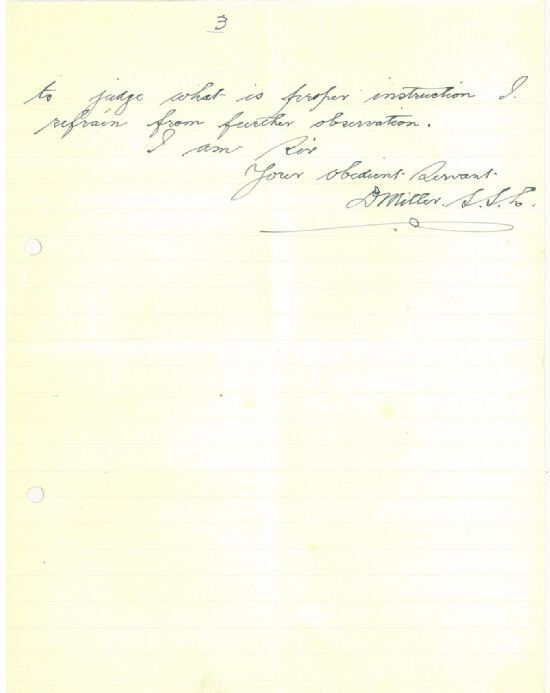 3
to judge what is proper instruction I
refrain from further observation.
I am Sir
Your obedient servant
D Miller. S.S.E.